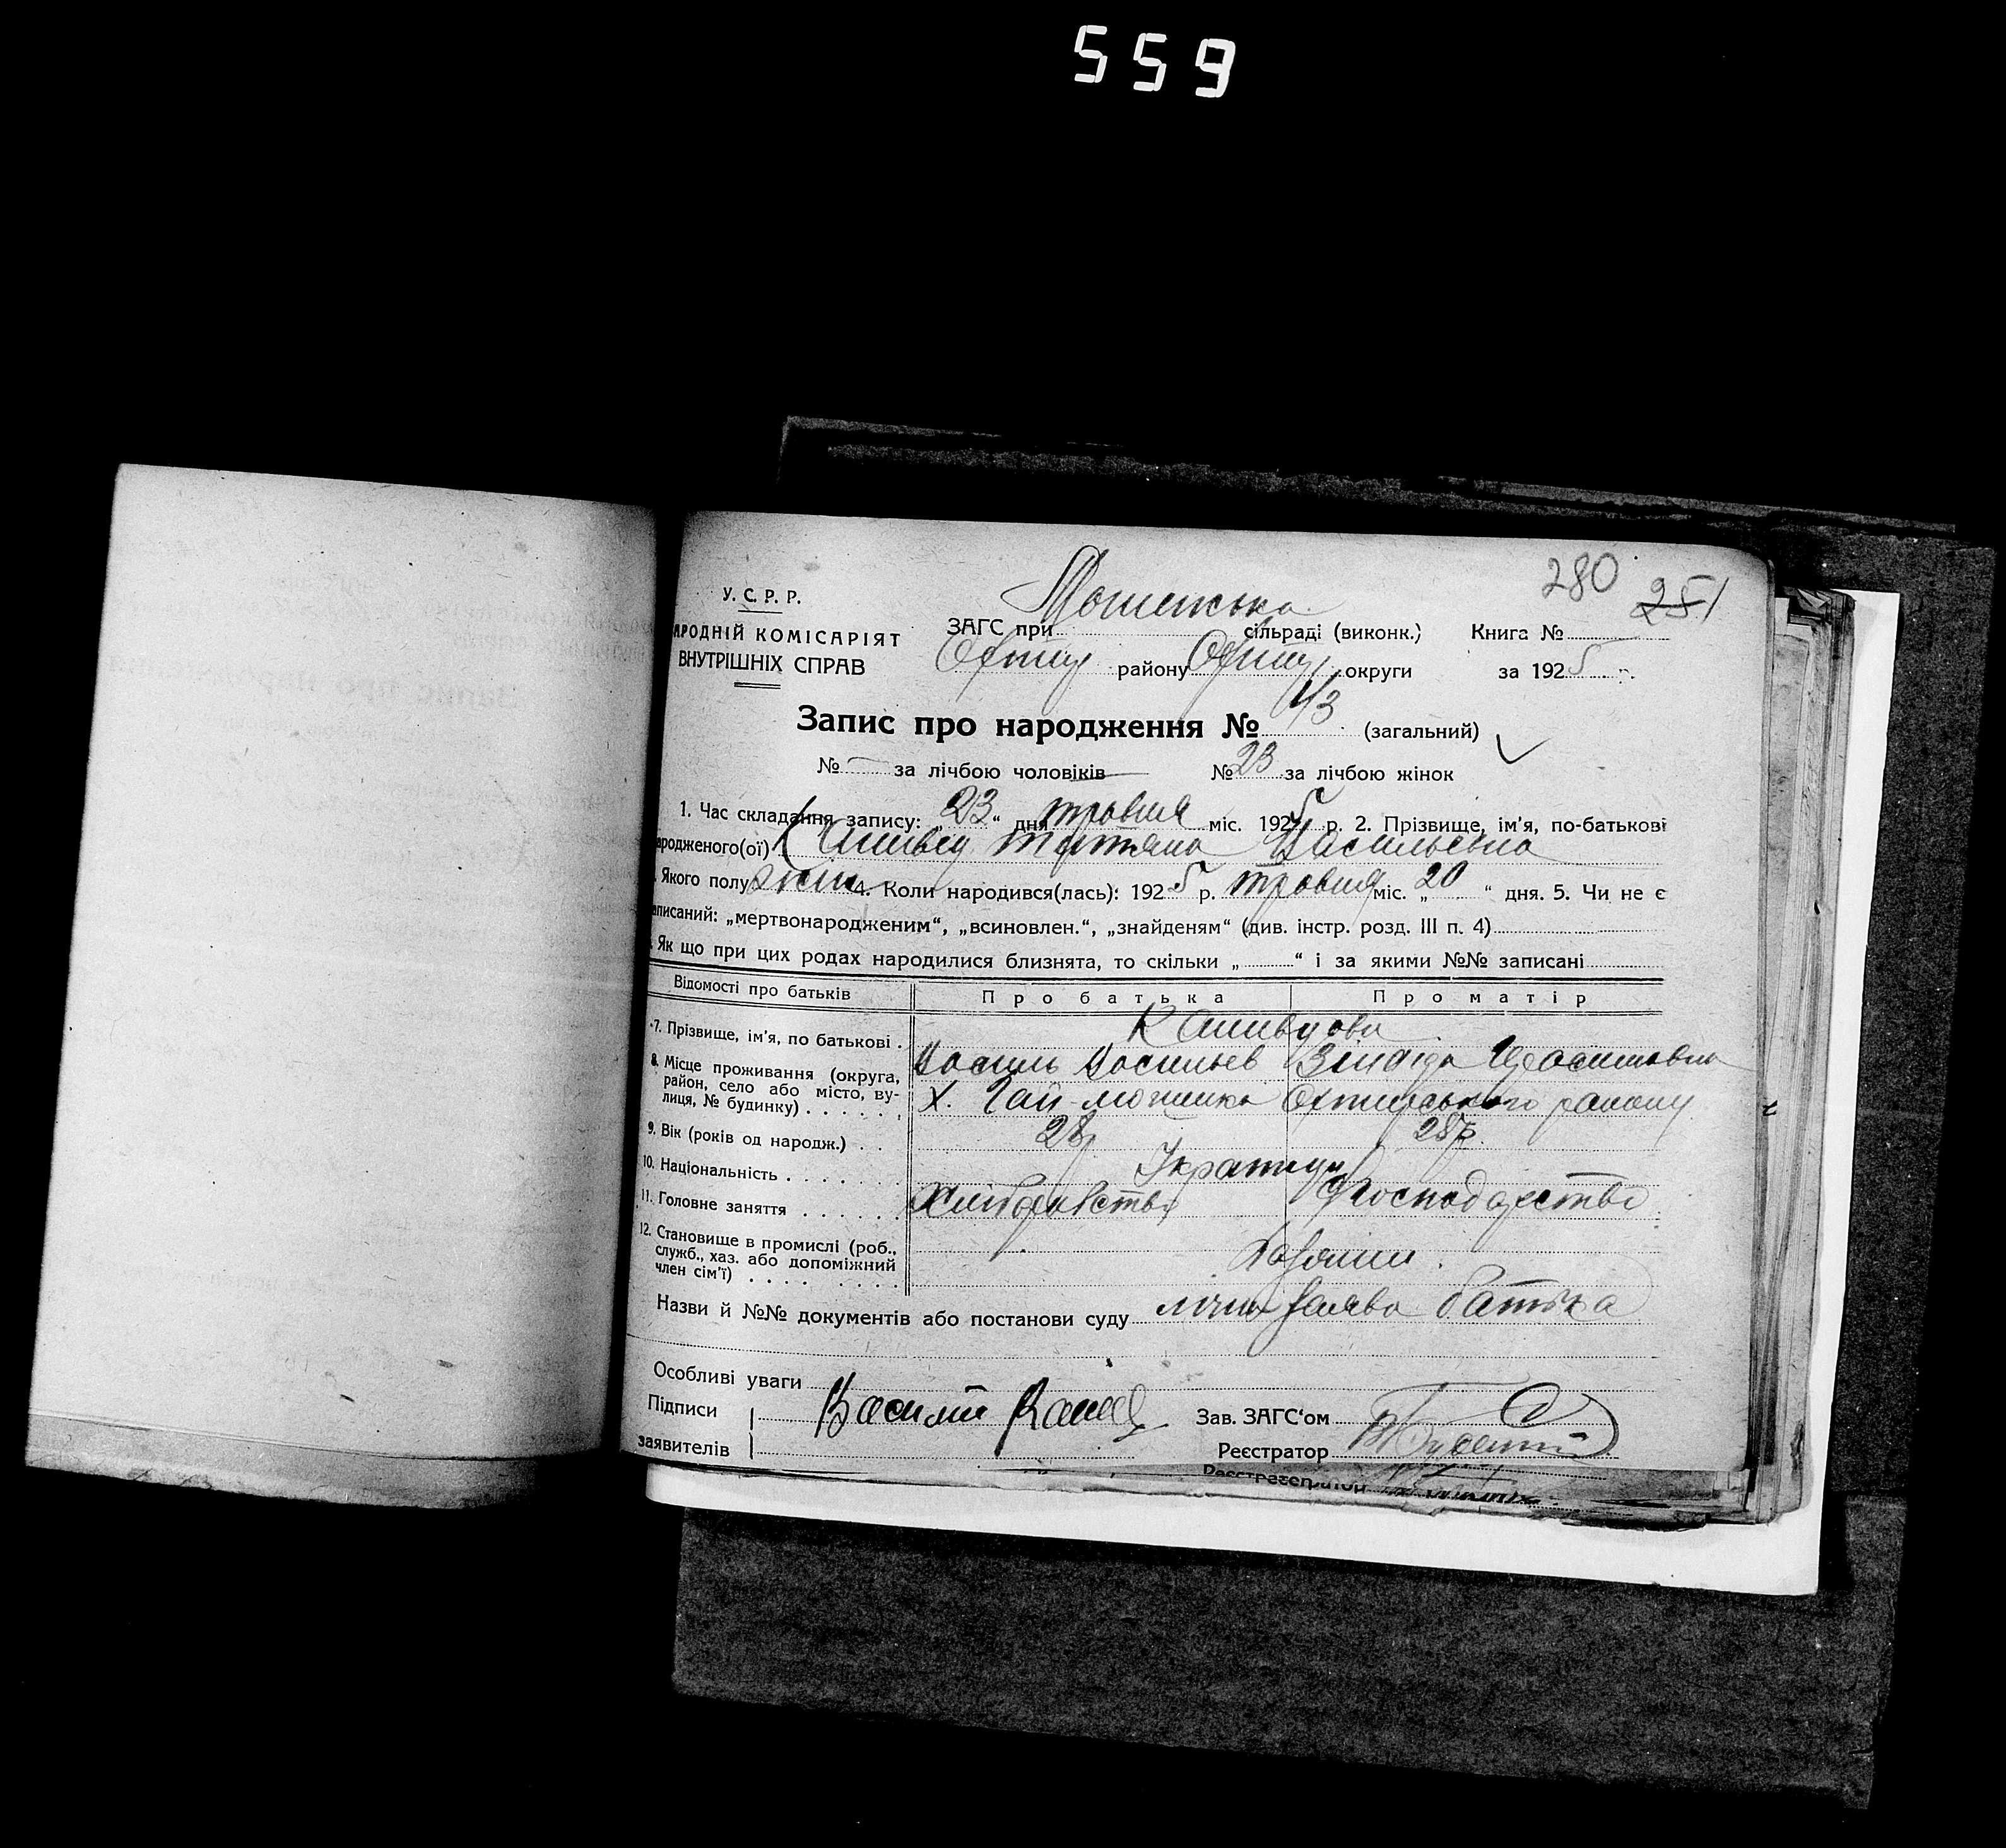 559
280 251
У. С. Р. Р.
АРОДНІЙ КОМІСАРІЯТ
ВНУТРІШНІХ СПРАВ
ЗАГС при сільраді (виконк.) Книга №
району округи за 1925 р.
Запис про народження № 43 (загальний)
№ — за лічбою чоловіків № 23 за лічбою жінок
1. Час складання запису: „23“ дня травня міс. 1925 р. 2. Прізвище, ім'я, по-батькові
ародженого(ої) Татяна Васильевна
Якого полу жін 4. Коли народився(лась): 1925 р. травня міс. „20“ дня. 5. Чи не є
аписаний: „мертвонародженим“, „всиновлен.“, „знайденям“ (див. інстр. розд. III п. 4)
Як що при цих родах народилися близнята, то скільки „ “ і за якими №№ записані
Відомості про батьків Про батька Про матір
7. Прізвище, ім'я, по батькові .
Василь Васильев
8. Місце проживання (округа, район, село або місто, вулиця, № будинку) . . . . .
Х. Гай-мошенка Охтирського району
9. Вік (років од народж.) . . 28р 28р
10. Національність . . . . . . Українці
11. Головне заняття . . . . . Хліборобство Господарство
12. Становище в промислі (роб., служб., хаз. або допоміжний член сім'ї) . . . . . . . .
Хазяіни.
Назви й №№ документів або постанови суду лічна заява батька
Особливі уваги
Підписи Василій Зав. ЗАГС'ом
заявителів Реєстратор
Реєстратор